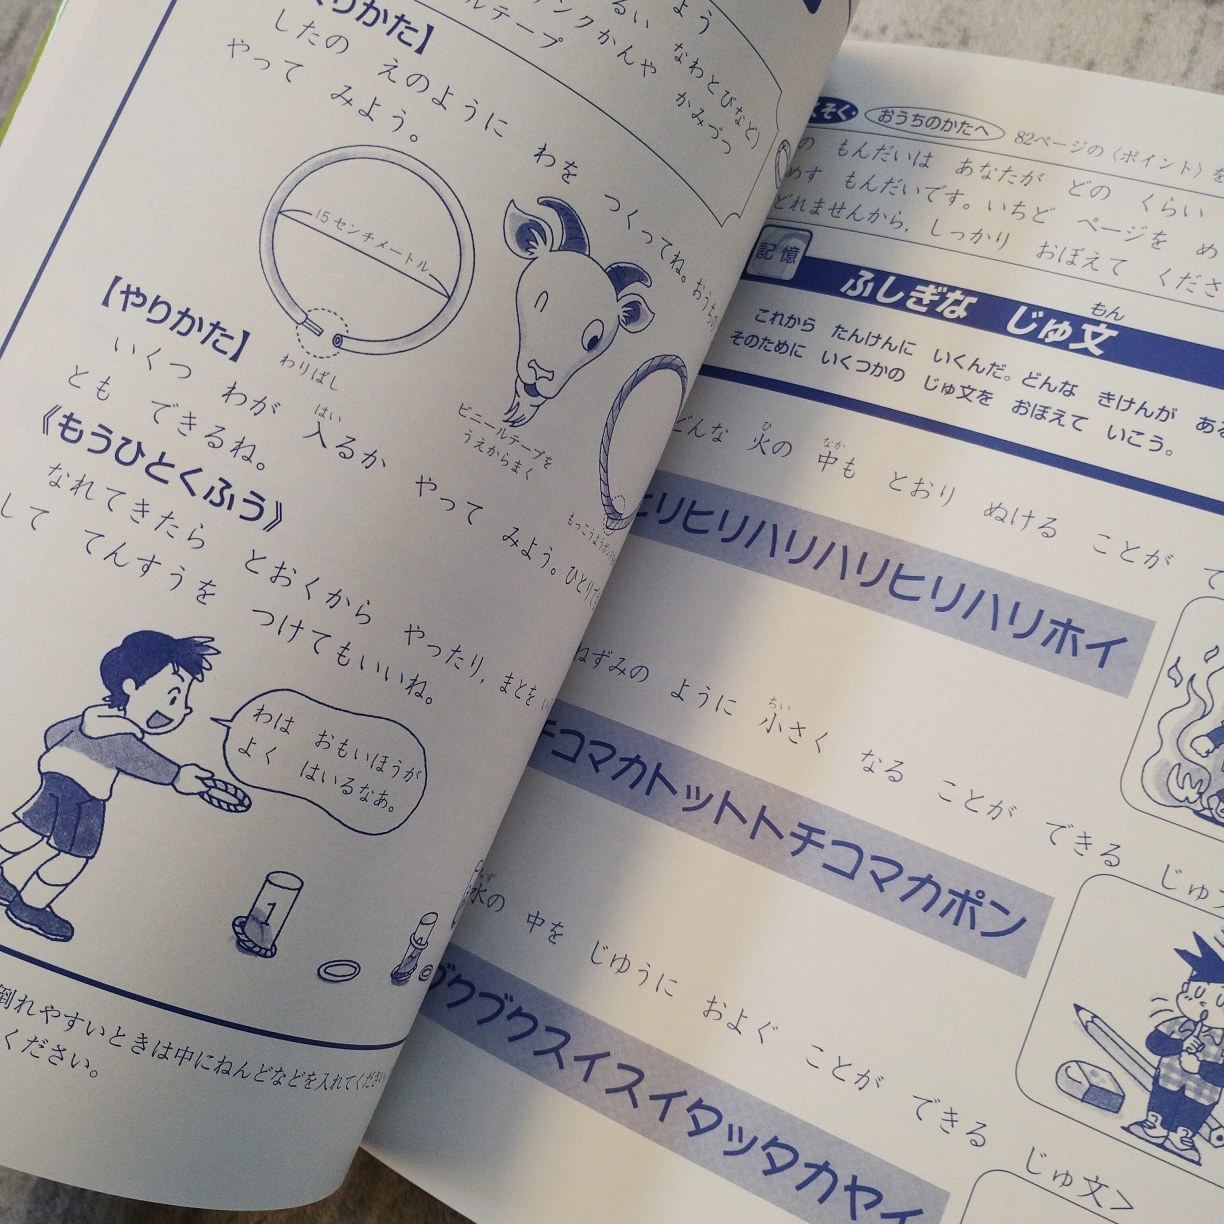 よう
るい なわとびなど)
ンクかんや かみづつ
ルテープ
くりかた】
したの えのように わを つくってね。おうちの
やって みよう。
15センチメートル
わりばし
ビニールテープを
うえからまく
【やりかた】
いくつ わが 入るか やって みよう。ひとりで
はい
とも できるね。
《もうひとくふう》
なれてきたら とおくから やったり，まとを
して てんすうを つけてもいいね。
わは おもいほうが
よく はいるなあ。
1
倒れやすいときは中にねんどなどを入れてください
ください。
くそく
おうちのかたへ
82ページの〈ポイント〉を
の もんだいは あなたが どの くらい
めす もんだいです。いちど ページを め
どれませんから，しっかり おぼえて くださ
記憶
ふしぎな じゅ文
もん
これから たんけんに いくんだ。どんな きけんが ある
そのために いくつかの じゅ文を おぼえて いこう。
どんな 火の 中も とおり ぬける ことが で
ひ
なか
ヒリヒリハリハリヒリハリホイ
ねずみの ように 小さく なる ことが できる じゅ文
ちい
チコマカトットトチコマカポン
水の 中を じゆうに およぐ ことが できる じゅ文>
みず
ブクブクスイスイタッタカヤイ